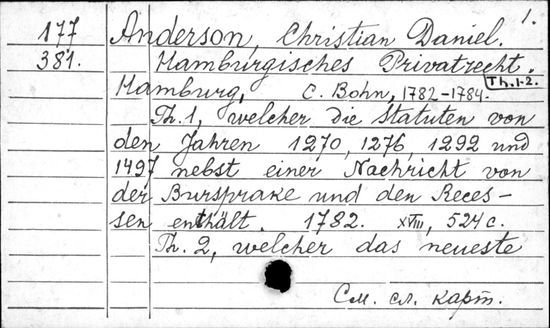 1.
177 Anderson, Christian Daniel.
381. Hamburgisches Privatrecht.
Th.1-2.
Hamburg, C. Bohn, 1782-1784.
Th. 1, welcher die Statuten von
den Jahren 1270, 1276, 1292 und
1497 nebst einer Nachricht von
der Bursprake und den Reces-
sen enthält. 1782. XVIII, 524 c.
Th. 2, welcher das neueste
См. сл. карт.